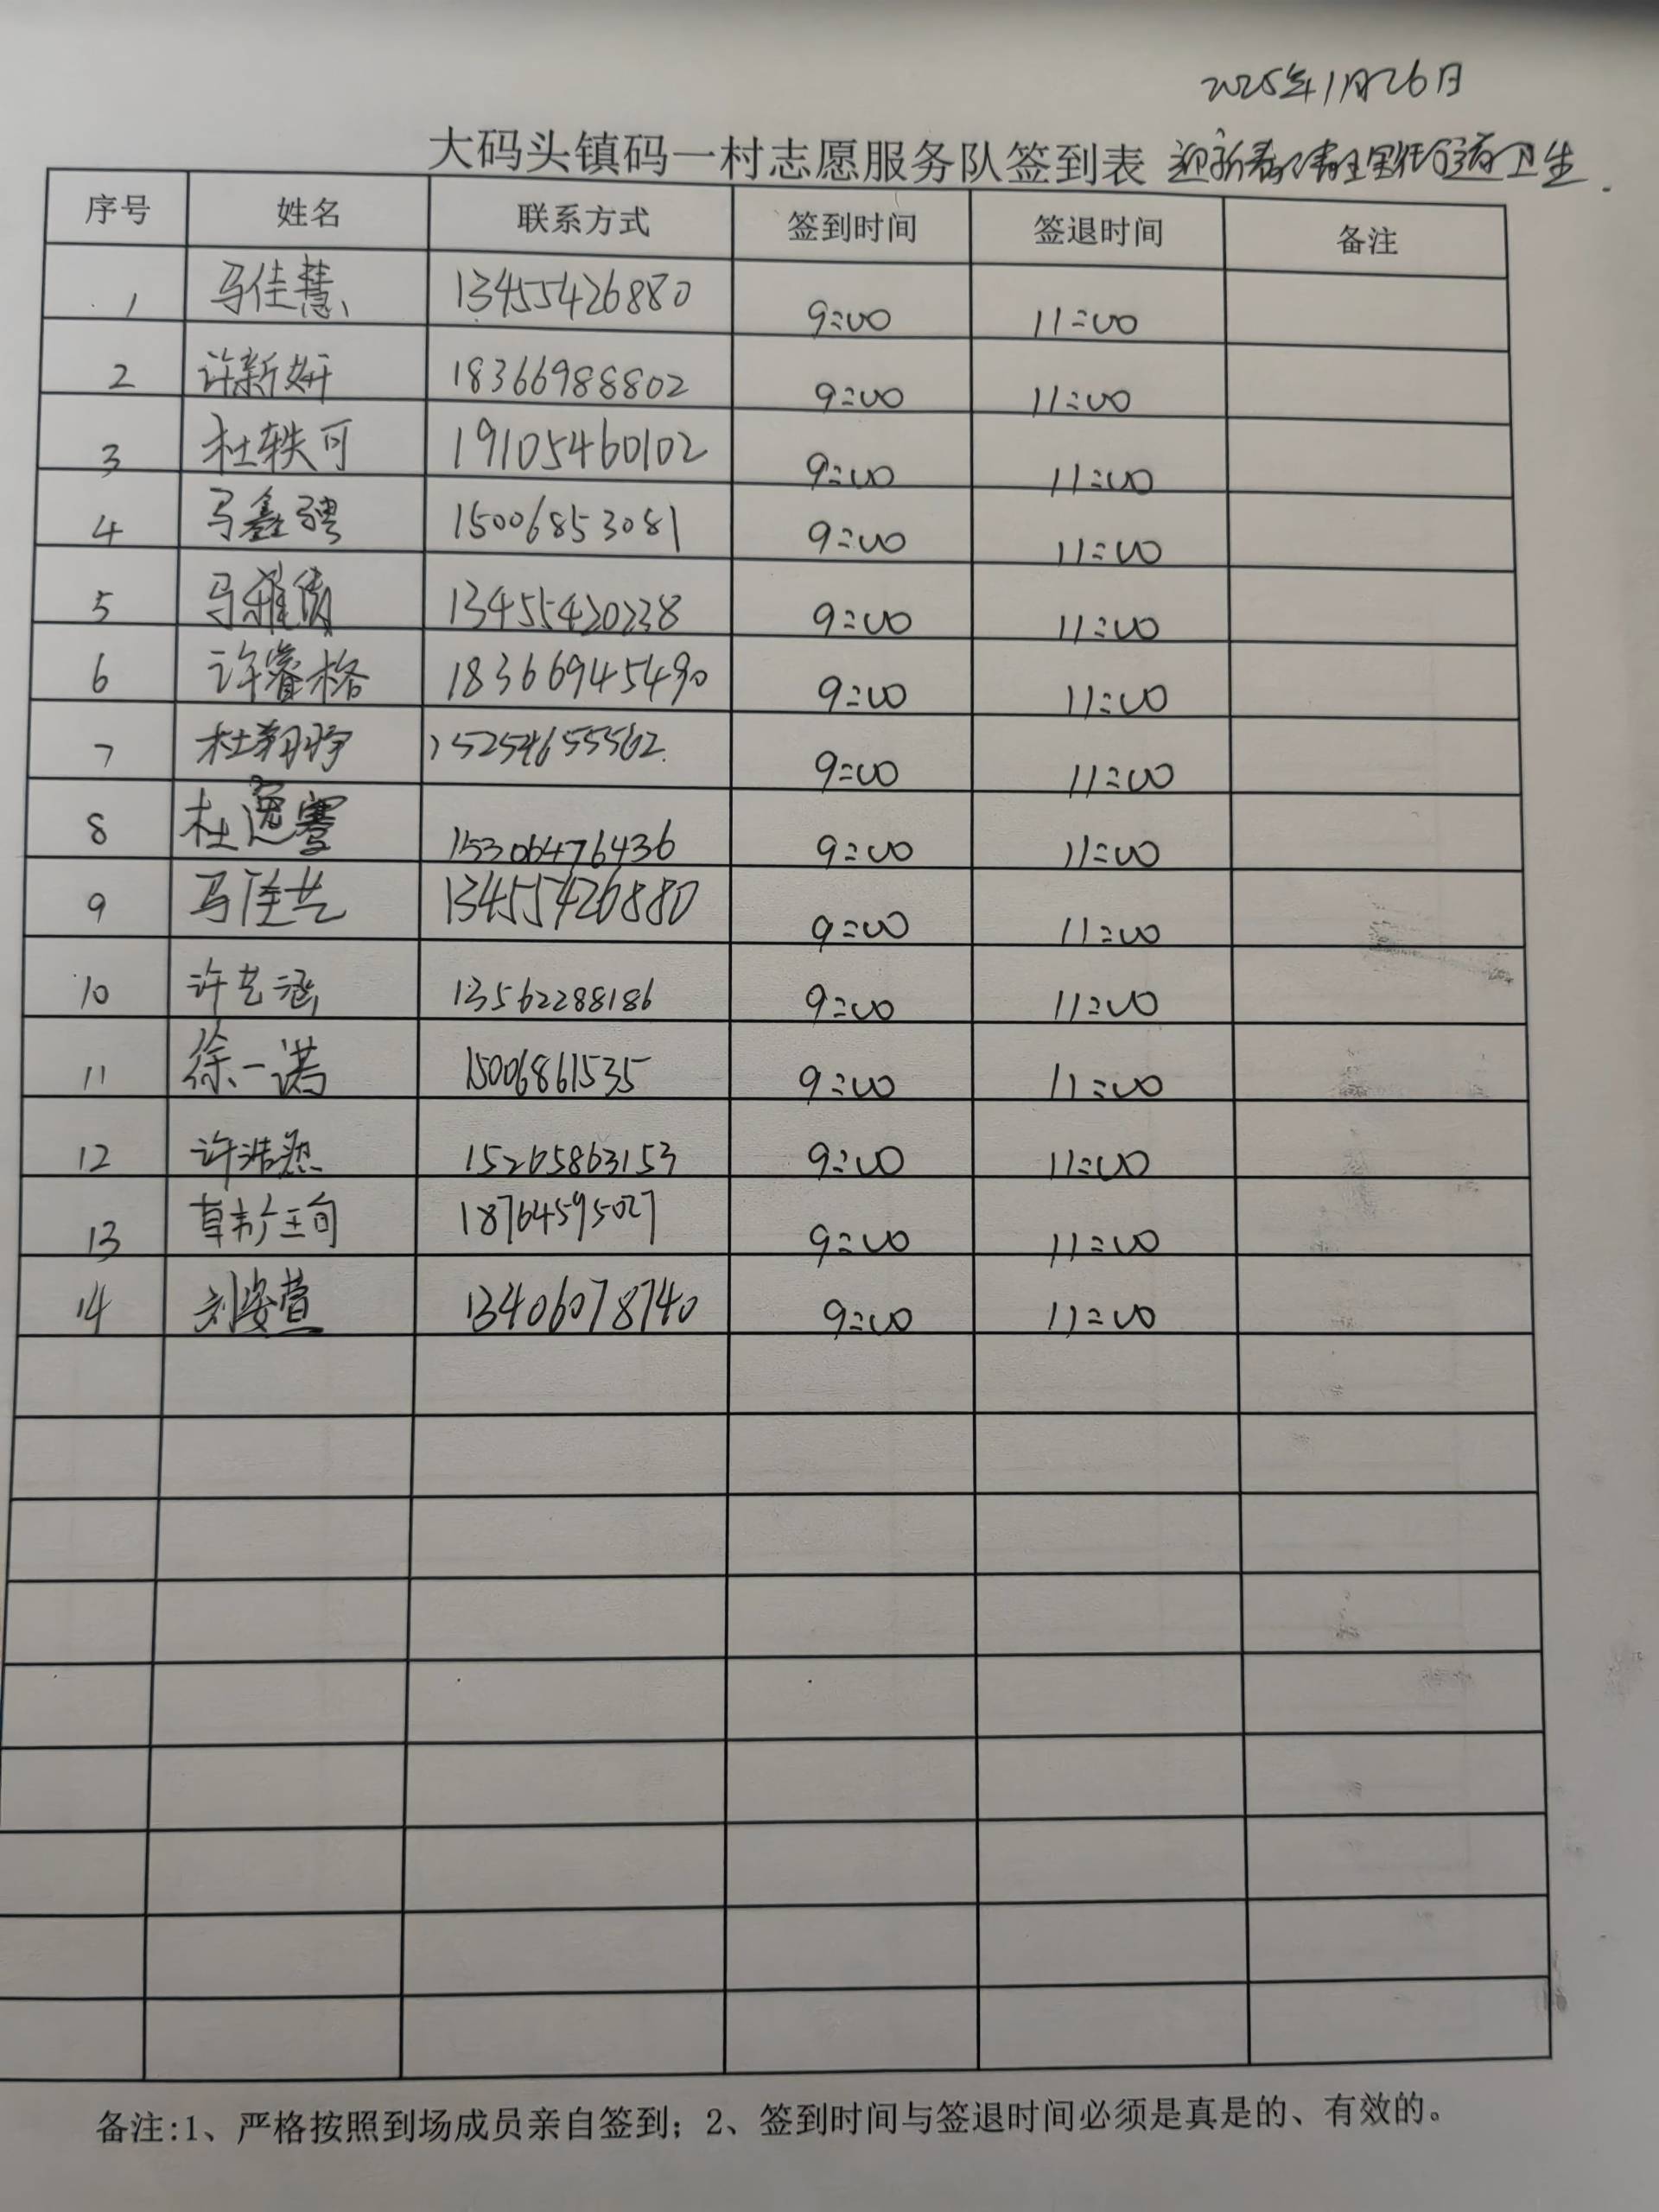 2025年1月26日
大码头镇码一村志愿服务队签到表 迎新春、清理街道卫生.
序号 姓名 联系方式 签到时间 签退时间 备注
1 马佳慧 13455426880 9:00 11:00
2 许新妍 18366988802 9:00 11:00
3 杜轶可 19105460102 9:00 11:00
4 马鑫骋 15006853081 9:00 11:00
5 马雅倩 13455420238 9:00 11:00
6 许睿格 18366945490 9:00 11:00
7 杜翔 15254655562. 9:00 11:00
8 杜逸 15306476436 9:00 11:00
9 马佳艺 13455426880 9:00 11:00
10 许艺涵 13562288186 9:00 11:00
11 徐一诺 15006861535 9:00 11:00
12 许浩 15265863153 9:00 11:00
13 18764595027 9:00 11:00
14 刘安萱 13406078740 9:00 11:00
备注:1、严格按照到场成员亲自签到；2、签到时间与签退时间必须是真是的、有效的。